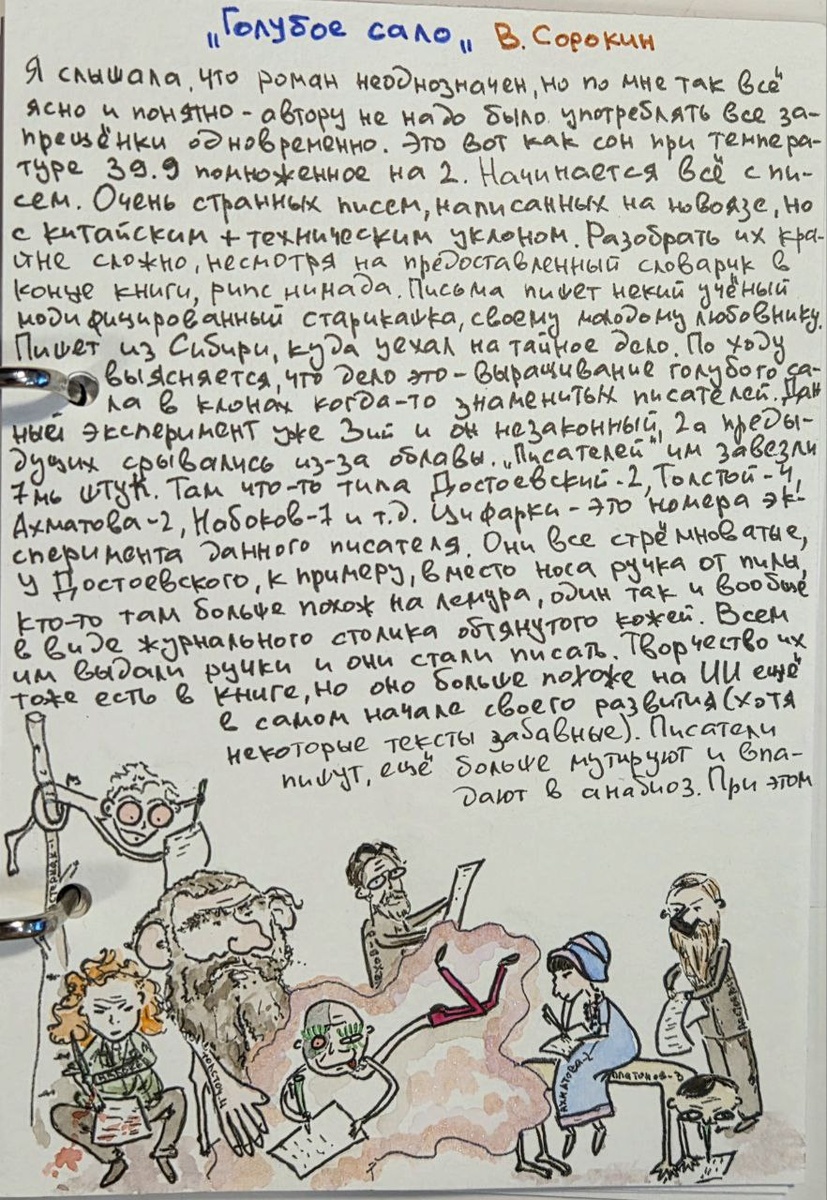 „Голубое сало„ В. Сорокин
Я слышала, что роман неоднозначен, но по мне так всё
ясно и понятно - автору не надо было употреблять все за-
прещёнки одновременно. Это вот как сон при темпера-
туре 39.9 помноженное на 2. Начинается всё с пи-
сем. Очень странных писем, написанных на новоязе, но
с китайским + техническим уклоном. Разобрать их кра-
йне сложно, несмотря на предоставленный словарик в
конце книги, рипс нимада. Письма пишет некий учёный
модифицированный старикашка, своему молодому любовнику.
Пишет из Сибири, куда уехал на тайное дело. По ходу
выясняется, что дело это - выращивание голубого са-
ла в клонах когда-то знаменитых писателей. Дан
ный эксперимент уже 3ий и он незаконный, 2а преды-
дущих срывались из-за облавы. „Писателей" им завезли
7мь штук. Там что-то типа Достоевский-2, Толстой-4,
Ахматова-2, Набоков-7 и т.д. Цифарки - это номера эк-
сперимента данного писателя. Они все стрёмноватые,
у Достоевского, к примеру, вместо носа ручка от пилы,
кто-то там больше похож на лемура, один так и вообще
в виде журнального столика обтянутого кожей. Всем
им выдали ручки и они стали писать. Творчество их
тоже есть в книге, но оно больше похоже на ИИ ещё
в самом начале своего развития (хотя
некоторые тексты забавные). Писатели
пишут, ещё больше мутируют и впа-
дают в анабиоз. При этом
Ахматова-2
Платонов-3
Толстой-4